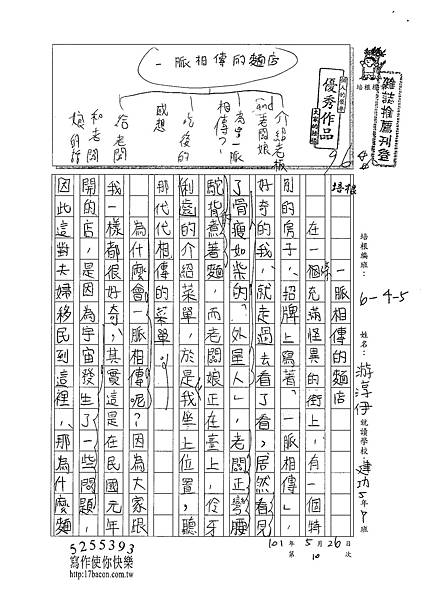 一脈相傳的麵店
介紹老板
and老闆娘
為甚一脈
相傳?
吃後的
感想
給老闆
和老闆
娘的話
優秀作品
雜誌推薦刊登
培根
964
培根編班:
6-4-5
姓名:
游淳伊
就讀學校:
建功5年 班
101年5月26日
第10次
培根
一脈相傳的麵店
在一個條充滿怪異的街上,有一個特
別的房子,招牌上寫著「一脈相傳」,
好奇的我,就走過去看了看,居然看見
了骨瘦如柴的「外星人」,老闆正彎腰
駝背的煮著麵,而老闆娘正在臺上,伶牙
俐齒的介紹菜單,於是我坐上位置,聽
那代代相傳的菜單。
為什麼會一脈相傳呢?因為大家跟
我一樣都很好奇,其實這是在民國元年
開的店,是因為宇宙發生了一些問題,
因此這對夫婦移民到這裡,那為什麼麵
5255393
寫作使你快樂
http://17bacon.com.tw